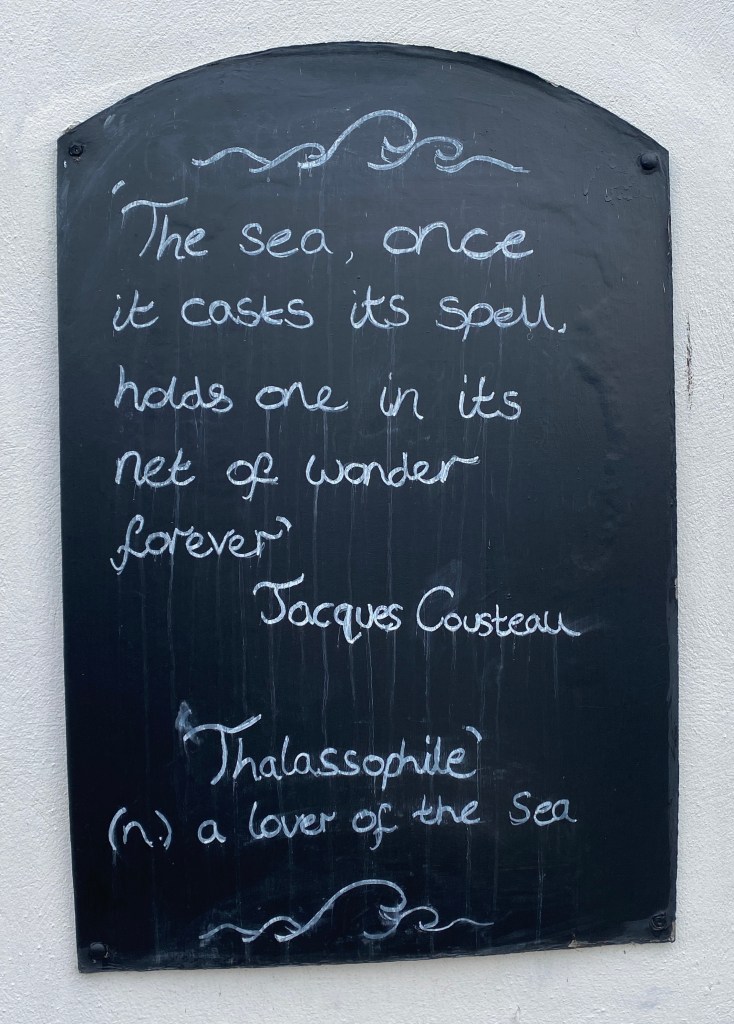 'The sea, once
it casts its spell,
holds one in its
net of wonder
forever'
Jacques Cousteau
'Thalassophile'
(n.) a lover of the Sea